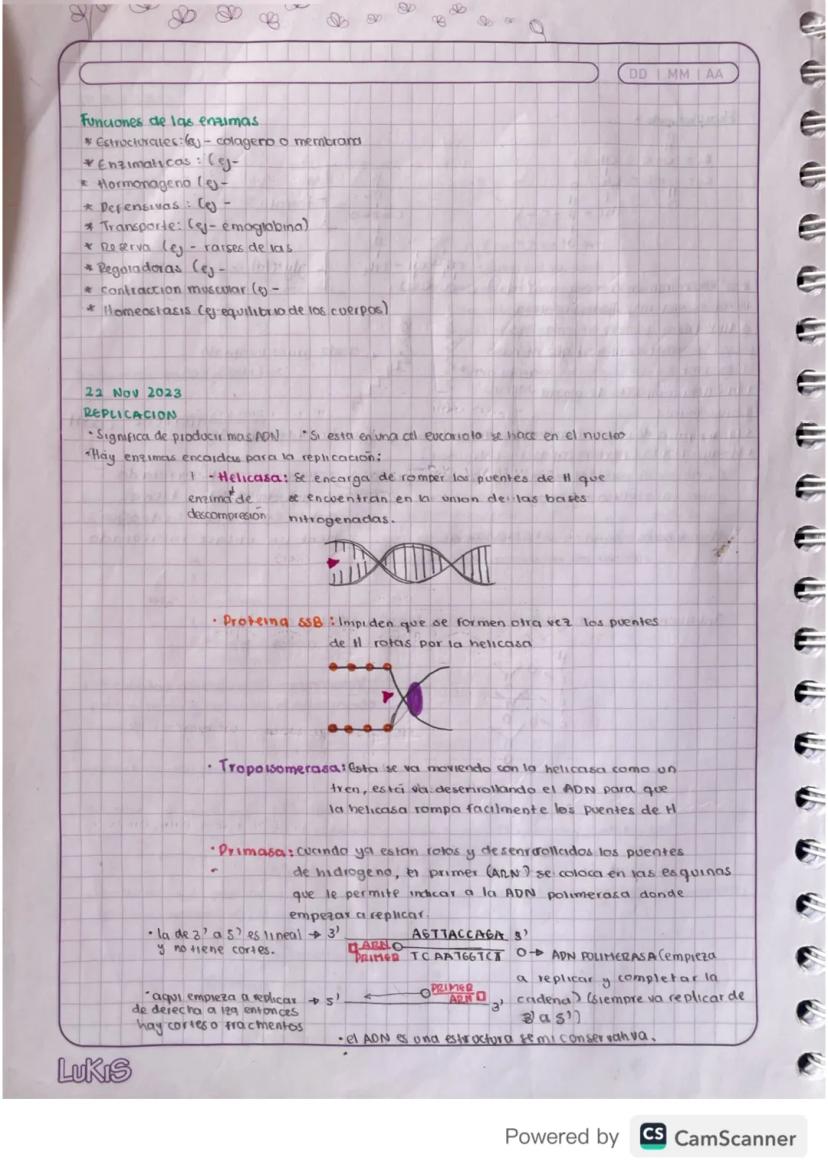 DD | MM | AA
Funciones de las enzimas
* Estructurales: (ej - colageno o membrana
* Enzimaticas : (ej-
* Hormonageno (ej-
* Defensivas : (ej -
* Transporte: (ej- emoglobina)
* Reserva (ej - raises de las
* Reguladoras (ej -
* contraccion muscular (ej -
* Homeostasis (ej-equilibrio de los cuerpos)
22 Nov 2023
REPLICACION
• Significa de producir mas ADN • Si esta en una cel eucariota se hace en el nucleo
• Hay enzimas encardas para la replicación:
1 - Helicasa: Se encarga de romper los puentes de H que
enzima de se encuentran en la union de las bases
descompresión nitrogenadas.
• Proteina SSB : Impiden que se formen otra vez los puentes
de H rotas por la helicasa
• Tropoisomerasa: Esta se va moviendo con la helicasa como un
tren, está va desenrollando el ADN para que
la helicasa rompa facilmente los puentes de H
• Primasa: cuando ya estan rotos y desenrrollados los puentes
de hidrogeno, el primer (ARN) se coloca en las esquinas
que le permite indicar a la ADN polimerasa donde
empezar a replicar.
• la de 3' a 5' es lineal → 3' AGTTACCAGA 5'
y no tiene cortes. ARN
PRIMER TCAATGGTCT O→ ADN POLIMERASA (empieza
a replicar y completar la
• aqui empieza a replicar → 5' PRIMER ARN 3' cadena) (siempre va replicar de
de derecha a izq entonces 3' a 5')
hay cortes o fragmentos
• el ADN es una estructura semiconservativa.
LUKIS
Powered by CS CamScanner